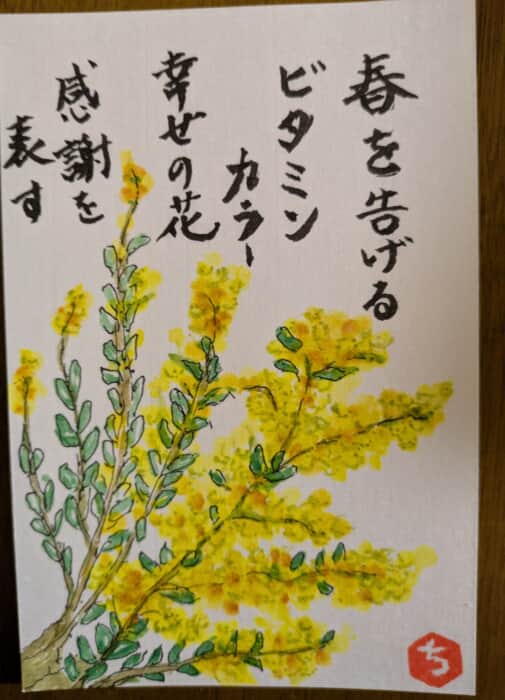 春を告げる
ビタミン
カラー
幸せの花
感謝を
表す
ち